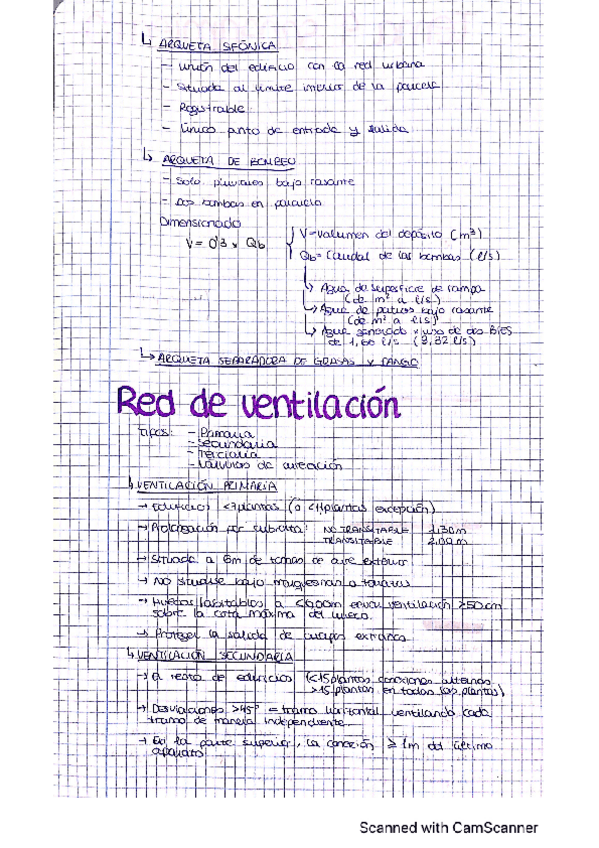 ↳ ARQUETA SIFÓNICA
- Unión del edificio con la red urbana
- Situada al límite interior de la parcela
- Registrable
- Único punto de entrada y salida
↳ ARQUETA DE BOMBEO
- Solo pluviales bajo rasante
- Dos bombas en paralelo
Dimensionado
V = 0'3 x Qb
V = Volumen del depósito (m³)
Qb = Caudal de las bombas (l/s)
↳ Agua de superficie de rampa
(de m² a l/s)
↳ Agua de patios bajo rasante
(de m² a l/s)
↳ Agua generada x uso de dos BIES
de 1,66 l/s (3,32 l/s)
↳ ARQUETA SEPARADORA DE GRASAS Y FANGO
Red de ventilación
Tipos: - Primaria
- Secundaria
- Terciaria
- Válvulas de aireación
↳ VENTILACIÓN PRIMARIA
→ Edificios <7 plantas (o <11 plantas excepción)
→ Prolongación por cubierta: NO TRANSITABLE 1,30 m
TRANSITABLE 2,00 m
→ Situada a 6m de tomas de aire exterior
→ No situarse bajo marquesinas o terrazas
→ Huecos habitables a <6,00m ventilación ≥50cm
sobre la cota máxima del hueco.
→ Proteger la salida de cuerpos extraños
↳ VENTILACIÓN SECUNDARIA
→ El resto de edificios (<15 plantas conexiones alternas
>15 plantas en todas las plantas)
→ Desviaciones >45° = tramo horizontal ventilando cada
tramo de manera independiente
→ En la parte superior, la conexión ≥ 1m del último
aparato
Scanned with CamScanner